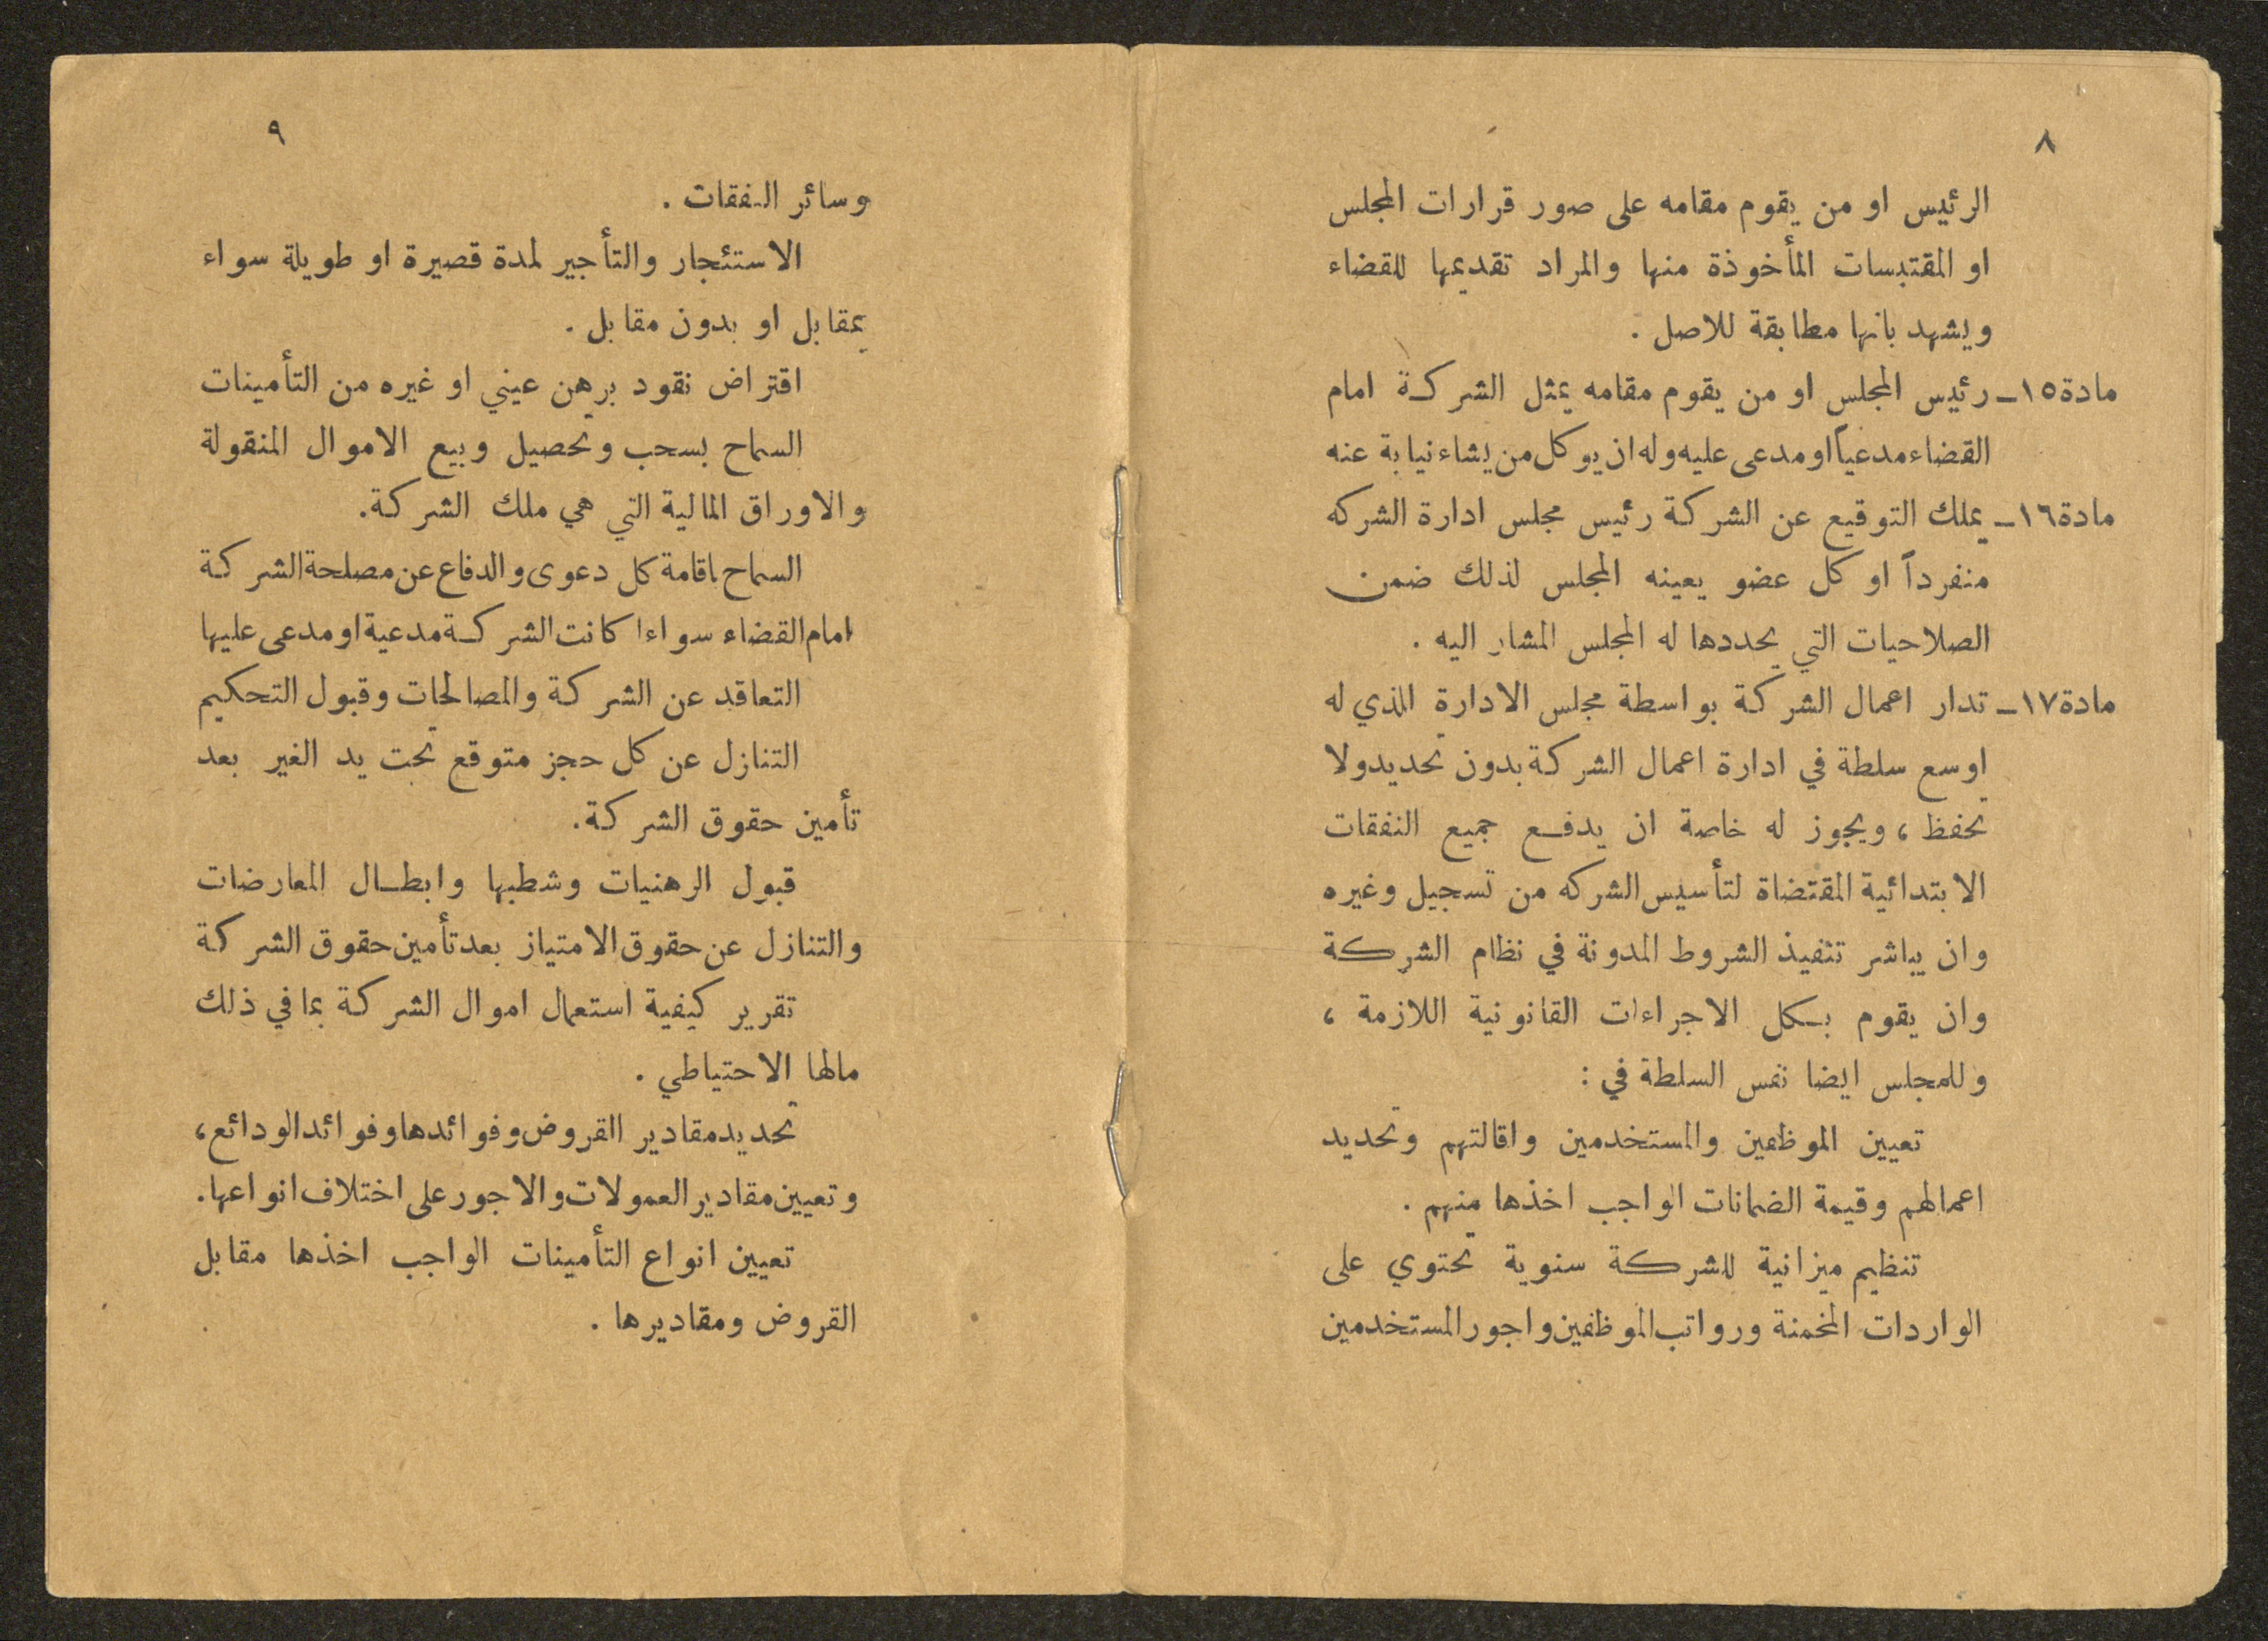 ٨
الرئيس او من يقوم مقامه على صور قرارات المجلس
او المقتبسات المأخوذة منها والمراد تقديمها للقضاء
ويشهد بانها مطابقة للاصل .
مادة ١٥ ـ رئيس المجلس او من يقوم مقامه يمثل الشركة امام
القضاء مدعياً او مدعى عليه وله ان يوكل من يشاء نيابة عنه
مادة ١٦ ـ يملك التوقيع عن الشركة رئيس مجلس ادارة الشركه
منفرداً او كل عضو يعينه المجلس لذلك ضمن
الصلاحيات التي يحددها له المجلس المشار اليه .
مادة ١٧ ـ تدار اعمال الشركة بواسطة مجلس الادارة الذي له
اوسع سلطة في ادارة اعمال الشركة بدون تحديد ولا
تحفظ ، ويجوز له خاصة ان يدفع جميع النفقات
الابتدائية المقتضاة لتأسيس الشركه من تسجيل وغيره
وان يباشر تنفيذ الشروط المدونة في نظام الشركة
وان يقوم بكل الاجراءات القانونية اللازمة ،
وللمجلس ايضا نفس السلطة في :
تعيين الموظفين والمستخدمين واقالتهم وتحديد
اعمالهم وقيمة الضمانات الواجب اخذها منهم .
تنظيم ميزانية للشركة سنوية تحتوي على
الواردات المخمنة ورواتب الموظفين واجور المستخدمين
٩
وسائر النفقات .
الاستئجار والتأجير لمدة قصيرة او طويلة سواء
بمقابل او بدون مقابل .
اقتراض نقود برهن عيني او غيره من التأمينات
السماح بسحب وتحصيل وبيع الاموال المنقولة
والاوراق المالية التي هي ملك الشركة.
السماح باقامة كل دعوى والدفاع عن مصلحة الشركة
امام القضاء سواءا كانت الشركة مدعية او مدعى عليها
التعاقد عن الشركة والمصالحات وقبول التحكيم
التنازل عن كل حجز متوقع تحت يد الغير بعد
تأمين حقوق الشركة.
قبول الرهنيات وشطبها وابطال المعارضات
والتنازل عن حقوق الامتياز بعد تأمين حقوق الشركة
تقرير كيفية استعمال اموال الشركة بما في ذلك
مالها الاحتياطي .
تحديد مقادير القروض وفوائدها وفوائد الودائع ،
وتعيين مقادير العمولات والاجور على اختلاف انواعها.
تعيين انواع التأمينات الواجب اخذها مقابل
القروض ومقاديرها .